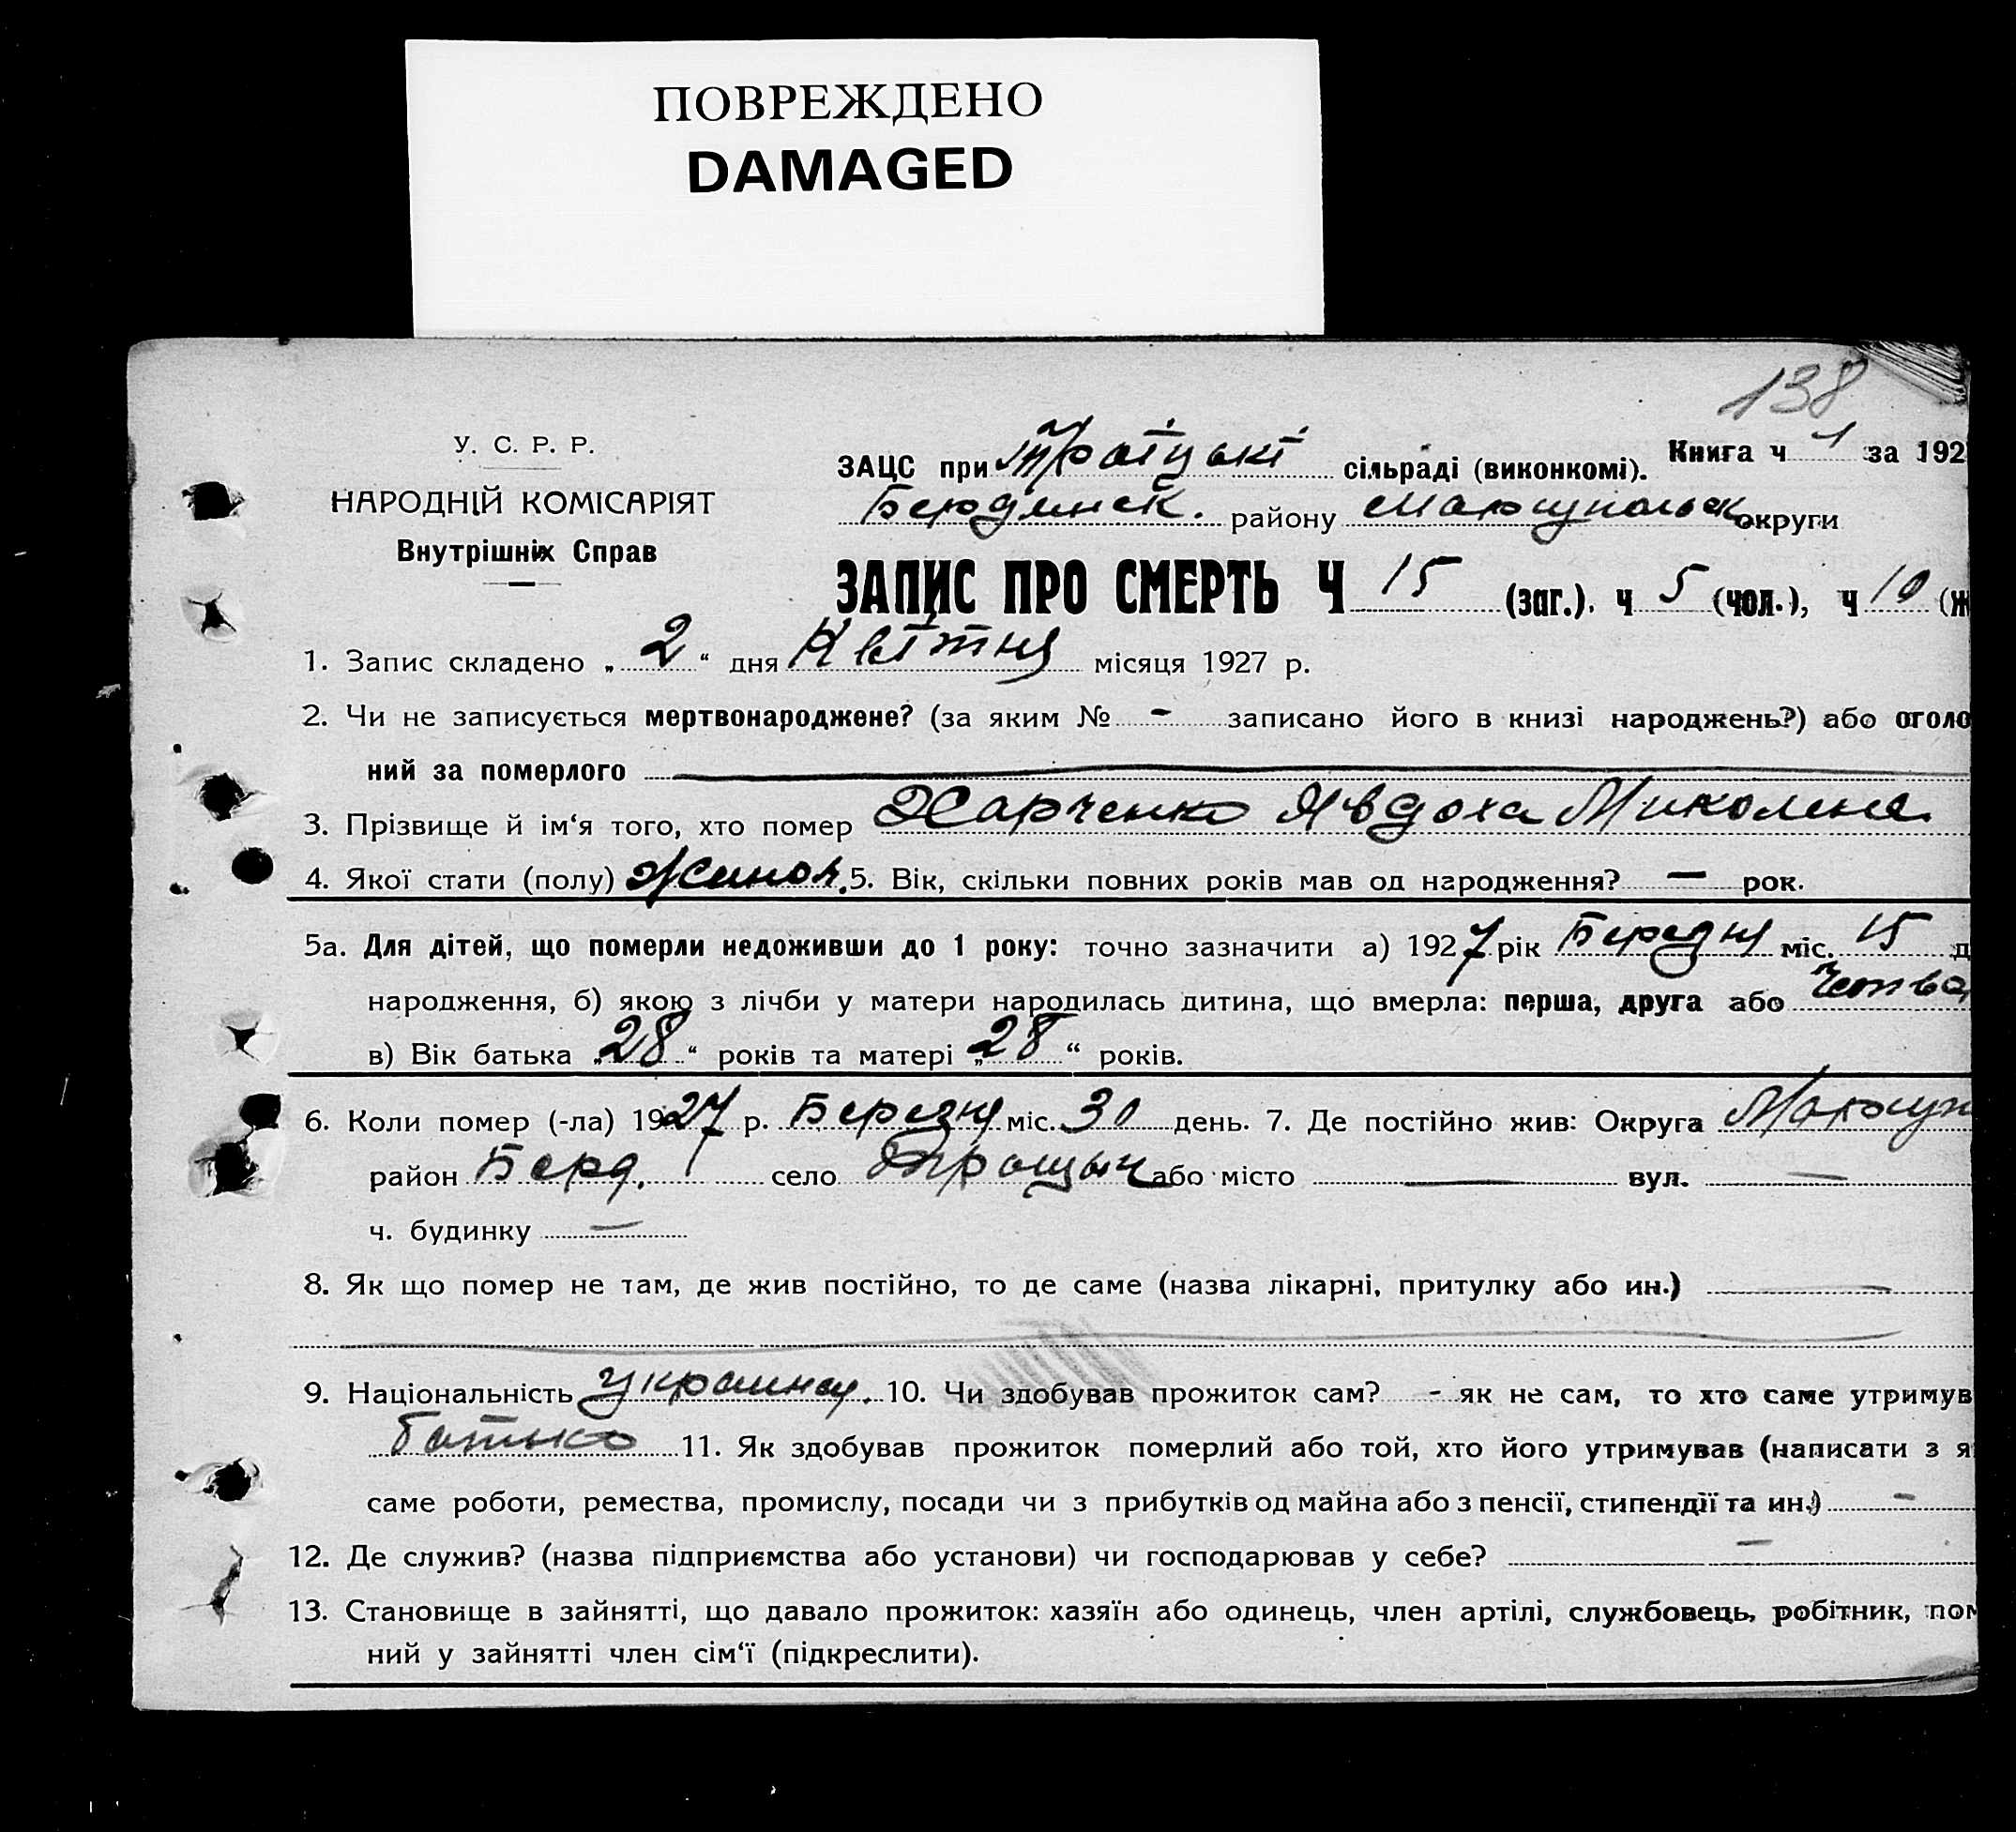 ПОВРЕЖДЕНО
DAMAGED
138
У. С. Р. Р.
НАРОДНІЙ КОМІСАРІЯТ
Внутрішніх Справ
ЗАЦС при Троїцькі сільраді (виконкомі). Книга ч 1 за 192
Бердянск. району Мариупольск округи
ЗАПИС ПРО СМЕРТЬ Ч 15 (заг.). ч 5 (чол.), ч 10 (ж
1. Запис складено „ 2 “ дня Квітня місяця 1927 р.
2. Чи не записується мертвонароджене? (за яким № - записано його в книзі народжень?) або оголо
ний за померлого —
3. Прізвище й ім‘я того, хто помер Харченко Явдоха Миколаев.
4. Якої стати (полу) Жиноч. 5. Вік, скільки повних років мав од народження? — рок.
5а. Для дітей, що померли недоживши до 1 року: точно зазначити а) 1927 рік Березня міс. 15 д
народження, б) якою з лічби у матери народилась дитина, що вмерла: перша, друга або четвер
в) Вік батька „28“ років та матері „28“ років.
6. Коли помер (-ла) 1927 р. Березня міс. 30 день. 7. Де постійно жив: Округа Мариуп
район Берд. село Троіцьк або місто — вул. —
ч. будинку —
8. Як що помер не там, де жив постійно, то де саме (назва лікарні, притулку або ин.) —
9. Національність украинка. 10. Чи здобував прожиток сам? - як не сам, то хто саме утримув
батько 11. Як здобував прожиток померлий або той, хто його утримував (написати з я
саме роботи, ремества, промислу, посади чи з прибутків од майна або з пенсії, стипендії та ин.) -
12. Де служив? (назва підприємства або установи) чи господарював у себе? —
13. Становище в зайнятті, що давало прожиток: хазяїн або одинець, член артілі, службовець, робітник, пом
ний у зайнятті член сім‘ї (підкреслити).